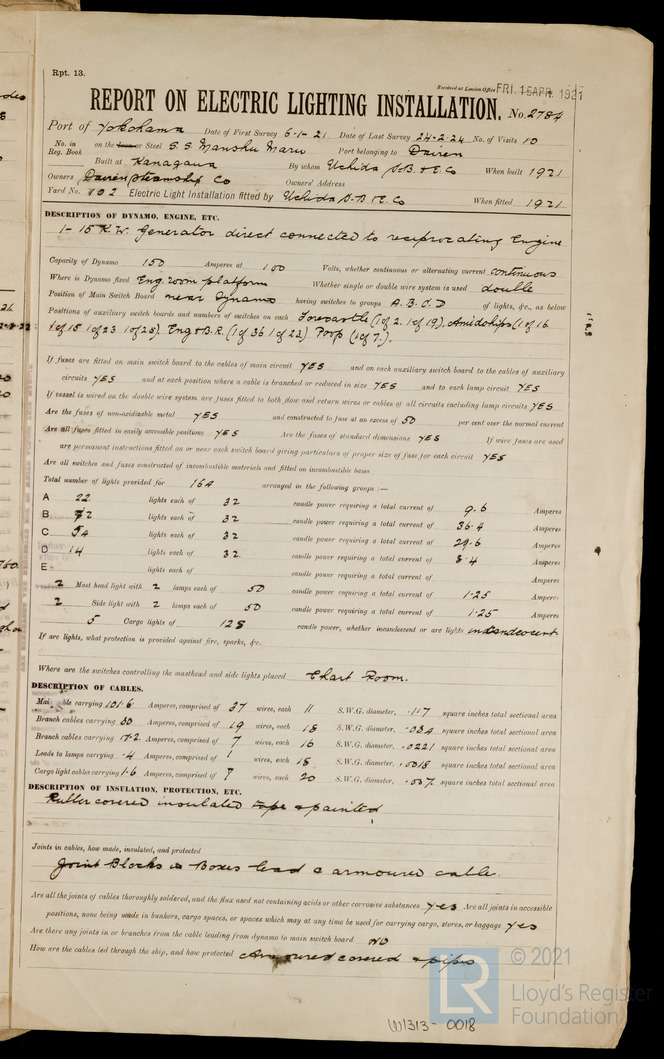 Rpt. 13.
Received at London Office FRI. 15 APR. 1921
REPORT ON ELECTRIC LIGHTING INSTALLATION. No. 2784
Port of Yokohama Date of First Survey 6-1-21 Date of Last Survey 24-2-24 No. of Visits 10
No. in Reg. Book on the Iron or Steel S.S. Manshu Maru Port belonging to Dairen
Built at Kanagawa By whom Uchida S.B. & E. Co When built 1921
Owners Dairen Steamship Co Owners' Address
Yard No. 102 Electric Light Installation fitted by Uchida S.B. & E. Co When fitted 1921
DESCRIPTION OF DYNAMO, ENGINE, ETC.
1- 15 K.W. Generator direct connected to reciprocating Engine
Capacity of Dynamo 150 Amperes at 100 Volts, whether continuous or alternating current continuous
Where is Dynamo fixed Eng. room platform Whether single or double wire system is used double
Position of Main Switch Board near dynamo having switches to groups A. B. C. D of lights, &c., as below
Positions of auxiliary switch boards and numbers of switches on each Forecastle (1 of 2. 1 of 19), Amidships (1 of 16
1 of 15 1 of 23 1 of 25). Eng & B.R. (1 of 36 1 of 22) Poop (1 of 7.).
If fuses are fitted on main switch board to the cables of main circuit YES and on each auxiliary switch board to the cables of auxiliary
circuits YES and at each position where a cable is branched or reduced in size YES and to each lamp circuit YES
If vessel is wired on the double wire system are fuses fitted to both flow and return wires or cables of all circuits including lamp circuits YES
Are the fuses of non-oxidizable metal YES and constructed to fuse at an excess of 50 per cent over the normal current
Are all fuses fitted in easily accessible positions YES Are the fuses of standard dimensions YES If wire fuses are used
are permanent instructions fitted on or near each switch board giving particulars of proper size of fuse for each circuit YES
Are all switches and fuses constructed of incombustible materials and fitted on incombustible bases
Total number of lights provided for 164 arranged in the following groups :—
A 22 lights each of 32 candle power requiring a total current of 9.6 Amperes
B 72 lights each of 32 candle power requiring a total current of 36.4 Amperes
C 54 lights each of 32 candle power requiring a total current of 29.6 Amperes
D 14 lights each of 32 candle power requiring a total current of 8.4 Amperes
E lights each of candle power requiring a total current of Amperes
2 Mast head light with 2 lamps each of 50 candle power requiring a total current of 1.25 Amperes
2 Side light with 2 lamps each of 50 candle power requiring a total current of 1.25 Amperes
5 Cargo lights of 128 candle power, whether incandescent or arc lights incandescent
If arc lights, what protection is provided against fire, sparks, &c.
Where are the switches controlling the masthead and side lights placed Chart Room.
DESCRIPTION OF CABLES.
Main cable carrying 101.6 Amperes, comprised of 37 wires, each 11 S.W.G. diameter, .117 square inches total sectional area
Branch cables carrying 30 Amperes, comprised of 19 wires, each 18 S.W.G. diameter, .034 square inches total sectional area
Branch cables carrying 17.2 Amperes, comprised of 7 wires, each 16 S.W.G. diameter, .0221 square inches total sectional area
Leads to lamps carrying .4 Amperes, comprised of 1 wires, each 18 S.W.G. diameter, .0018 square inches total sectional area
Cargo light cables carrying 1.6 Amperes, comprised of 7 wires, each 20 S.W.G. diameter, .007 square inches total sectional area
DESCRIPTION OF INSULATION, PROTECTION, ETC.
Rubber covered insulated tape & painted
Joints in cables, how made, insulated, and protected
Joint Blocks in Boxes lead & armoured cable.
Are all the joints of cables thoroughly soldered, and the flux used not containing acids or other corrosive substances yes Are all joints in accessible
positions, none being made in bunkers, cargo spaces, or spaces which may at any time be used for carrying cargo, stores, or baggage yes
Are there any joints in or branches from the cable leading from dynamo to main switch board NO
How are the cables led through the ship, and how protected Armoured covered & pipes
© 2021
Lloyd's Register
Foundation
LR
W1313-0018